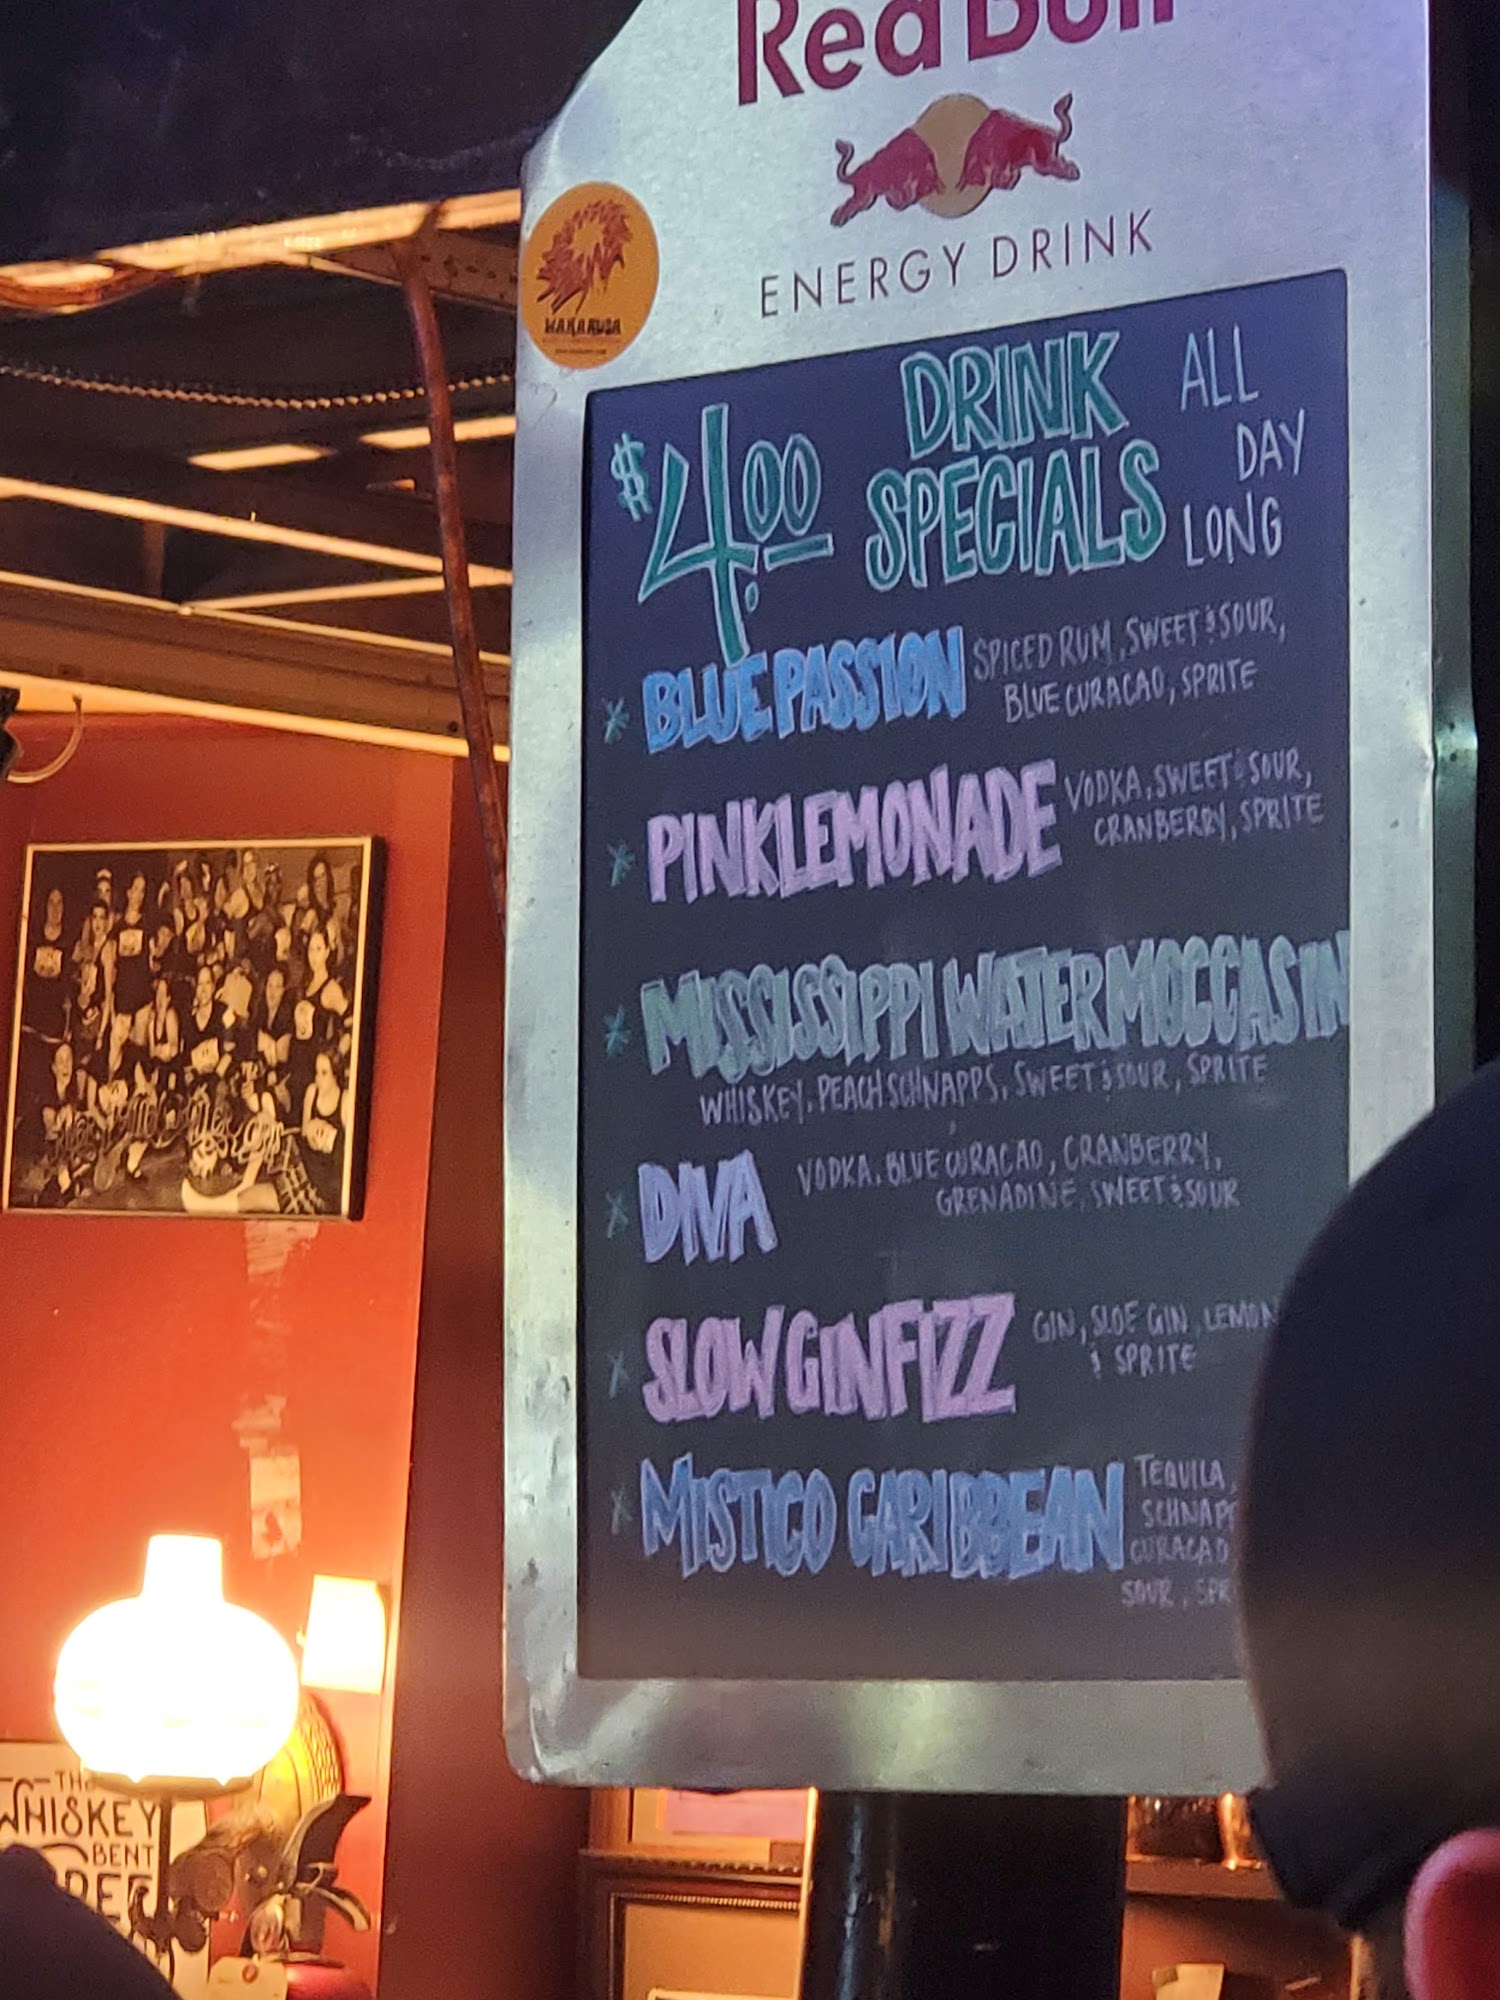 Red Bull
ENERGY DRINK
WAKARUSA
$4.00 DRINK SPECIALS ALL DAY LONG
* BLUE PASSION SPICED RUM, SWEET & SOUR,
BLUE CURACAO, SPRITE
* PINK LEMONADE VODKA, SWEET & SOUR,
CRANBERRY, SPRITE
* MISSISSIPPI WATER MOCCASIN
WHISKEY, PEACH SCHNAPPS, SWEET & SOUR, SPRITE
* DIVA VODKA, BLUE CURACAO, CRANBERRY,
GRENADINE, SWEET & SOUR
* SLOW GIN FIZZ GIN, SLOE GIN, LEMON
& SPRITE
* MISTICO CARIBBEAN TEQUILA,
SCHNAPP
CURACAO
SOUR, SPR
THE
WHISKEY
BENT